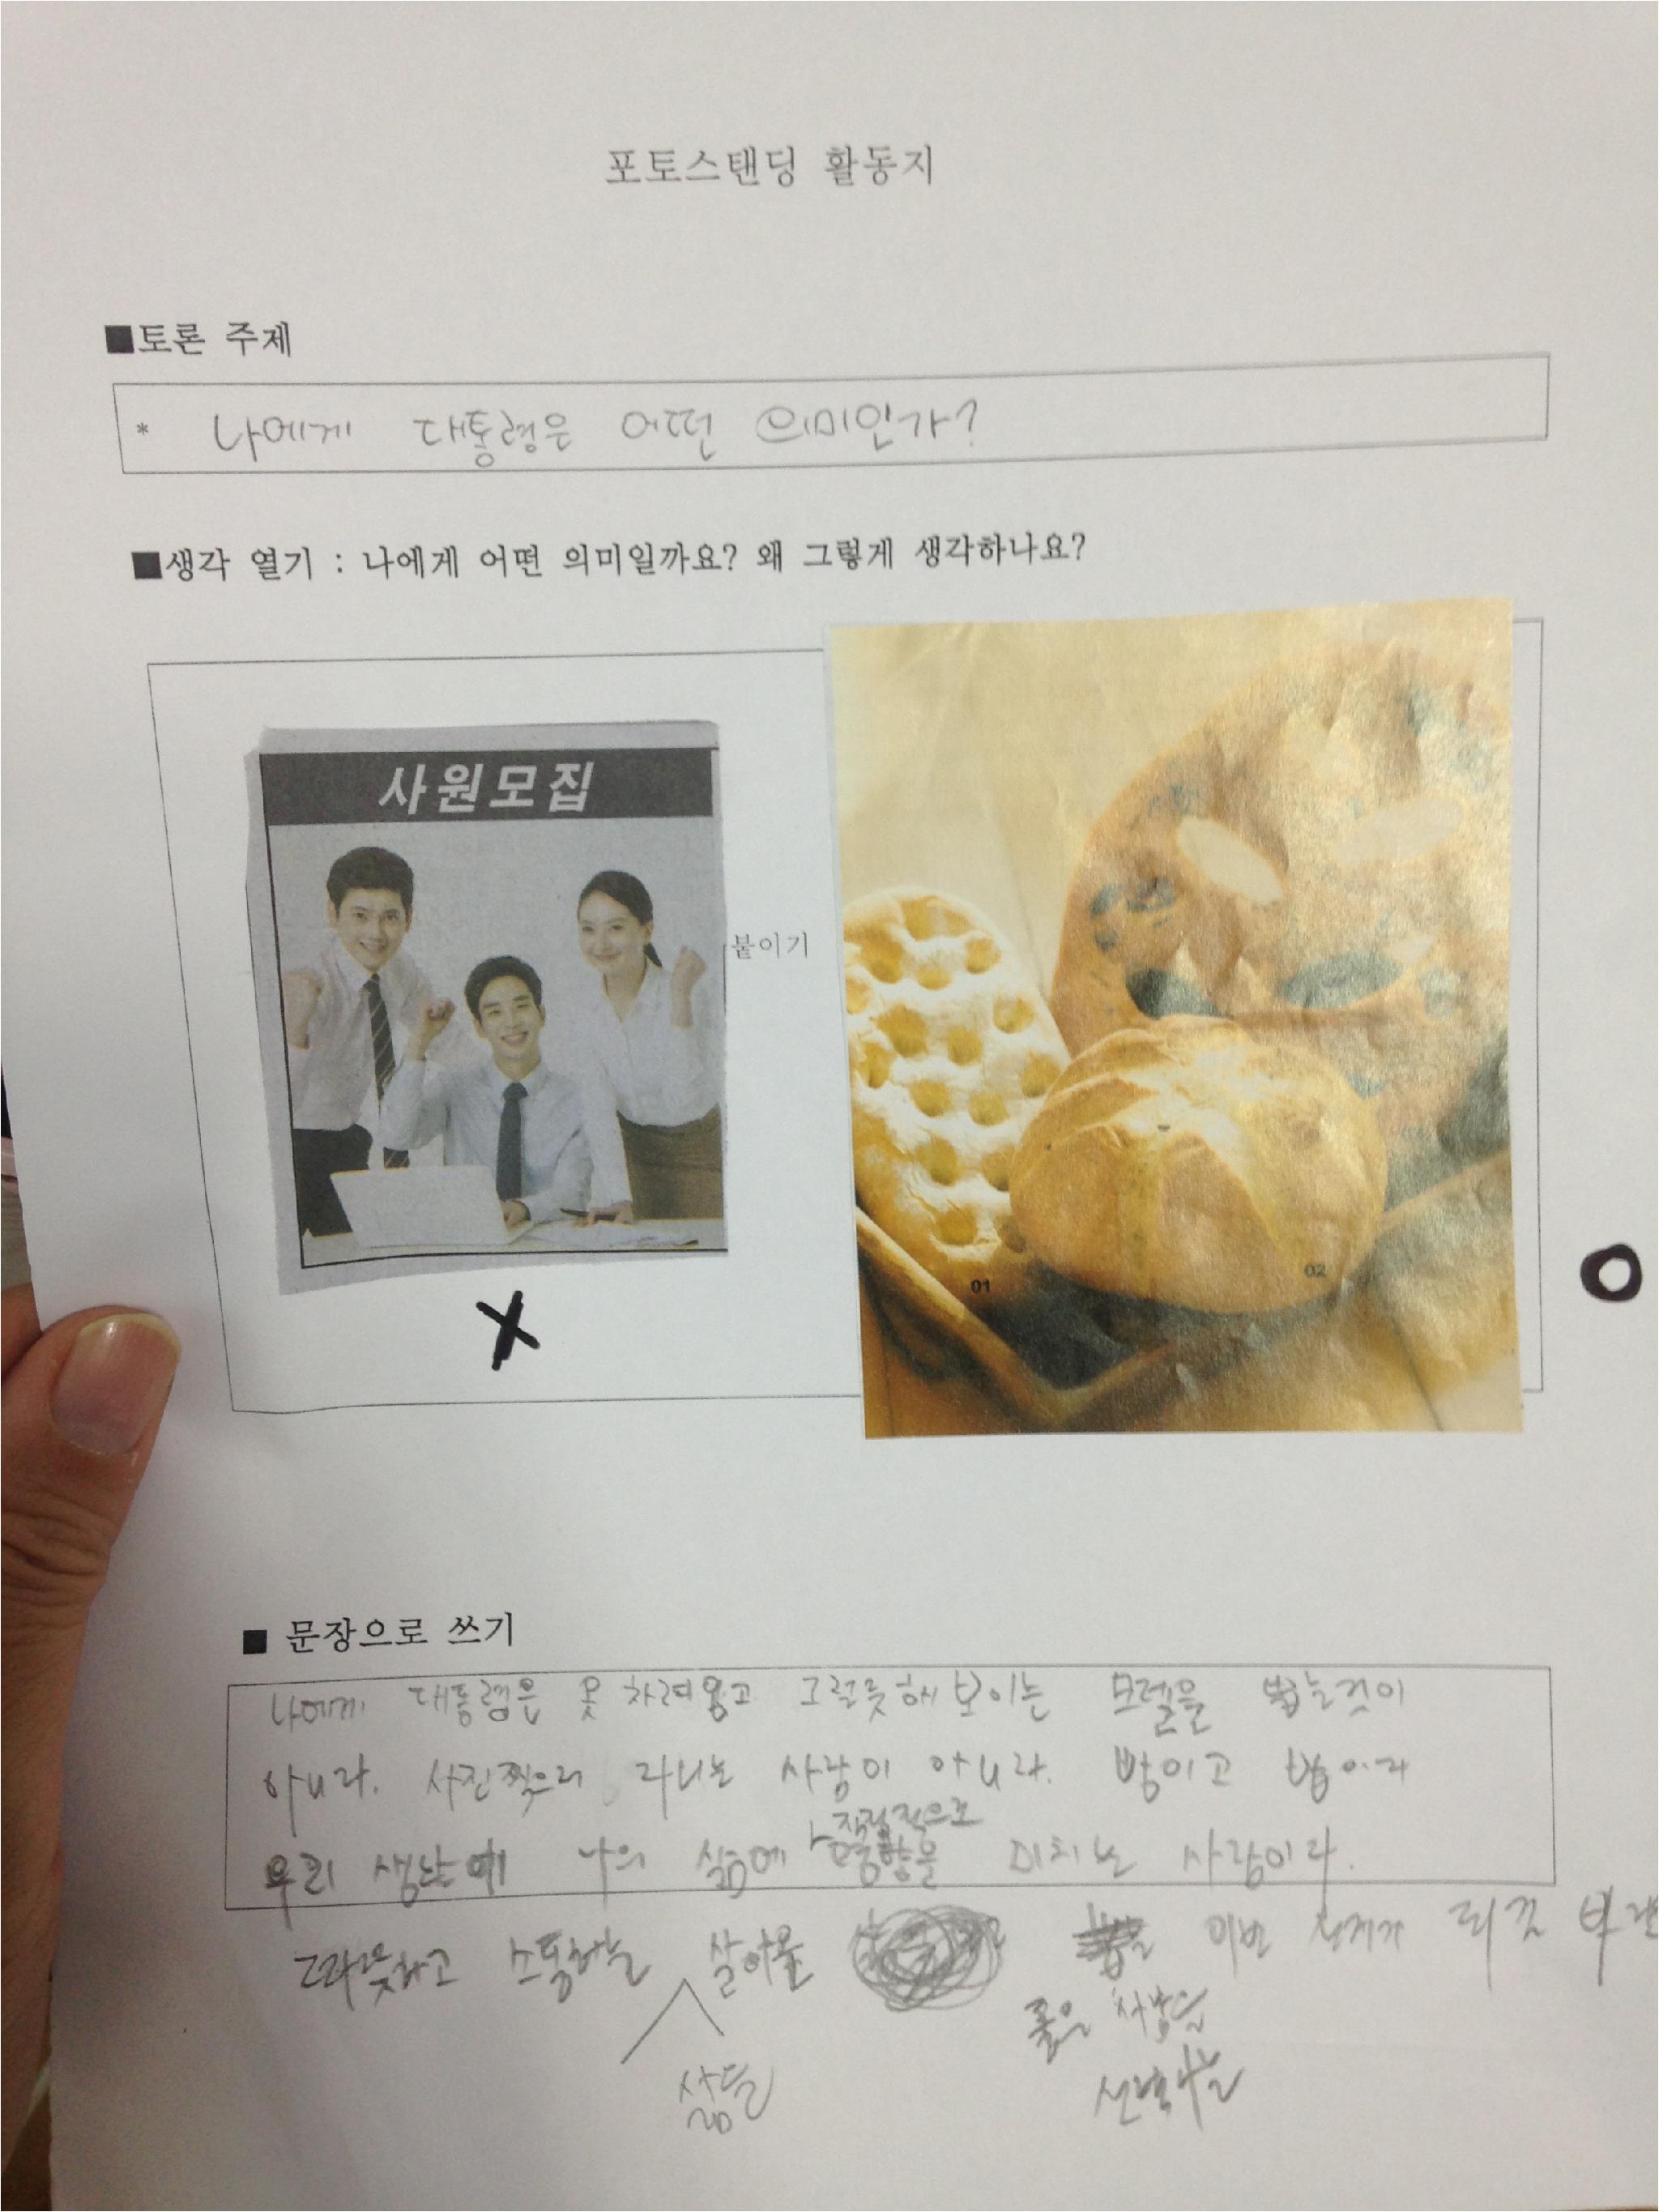 포토스탠딩 활동지
■토론 주제
* 나에게 대통령은 어떤 의미인가?
■생각 열기 : 나에게 어떤 의미일까요? 왜 그렇게 생각하나요?
사원모집
붙이기
01
02
■ 문장으로 쓰기
나에게 대통령은 옷 차려입고 그럴듯해 보이는 모델을 뽑는것이
아니라. 사진찍으러 다니는 사람이 아니라. 빵이고 밥이자
직접적으로
우리 생난에 나의 삶에 영향을 미치는 사람이다.
살아볼 이번 선거가 되길 바란
좋은 사람을
삶을
선택하는